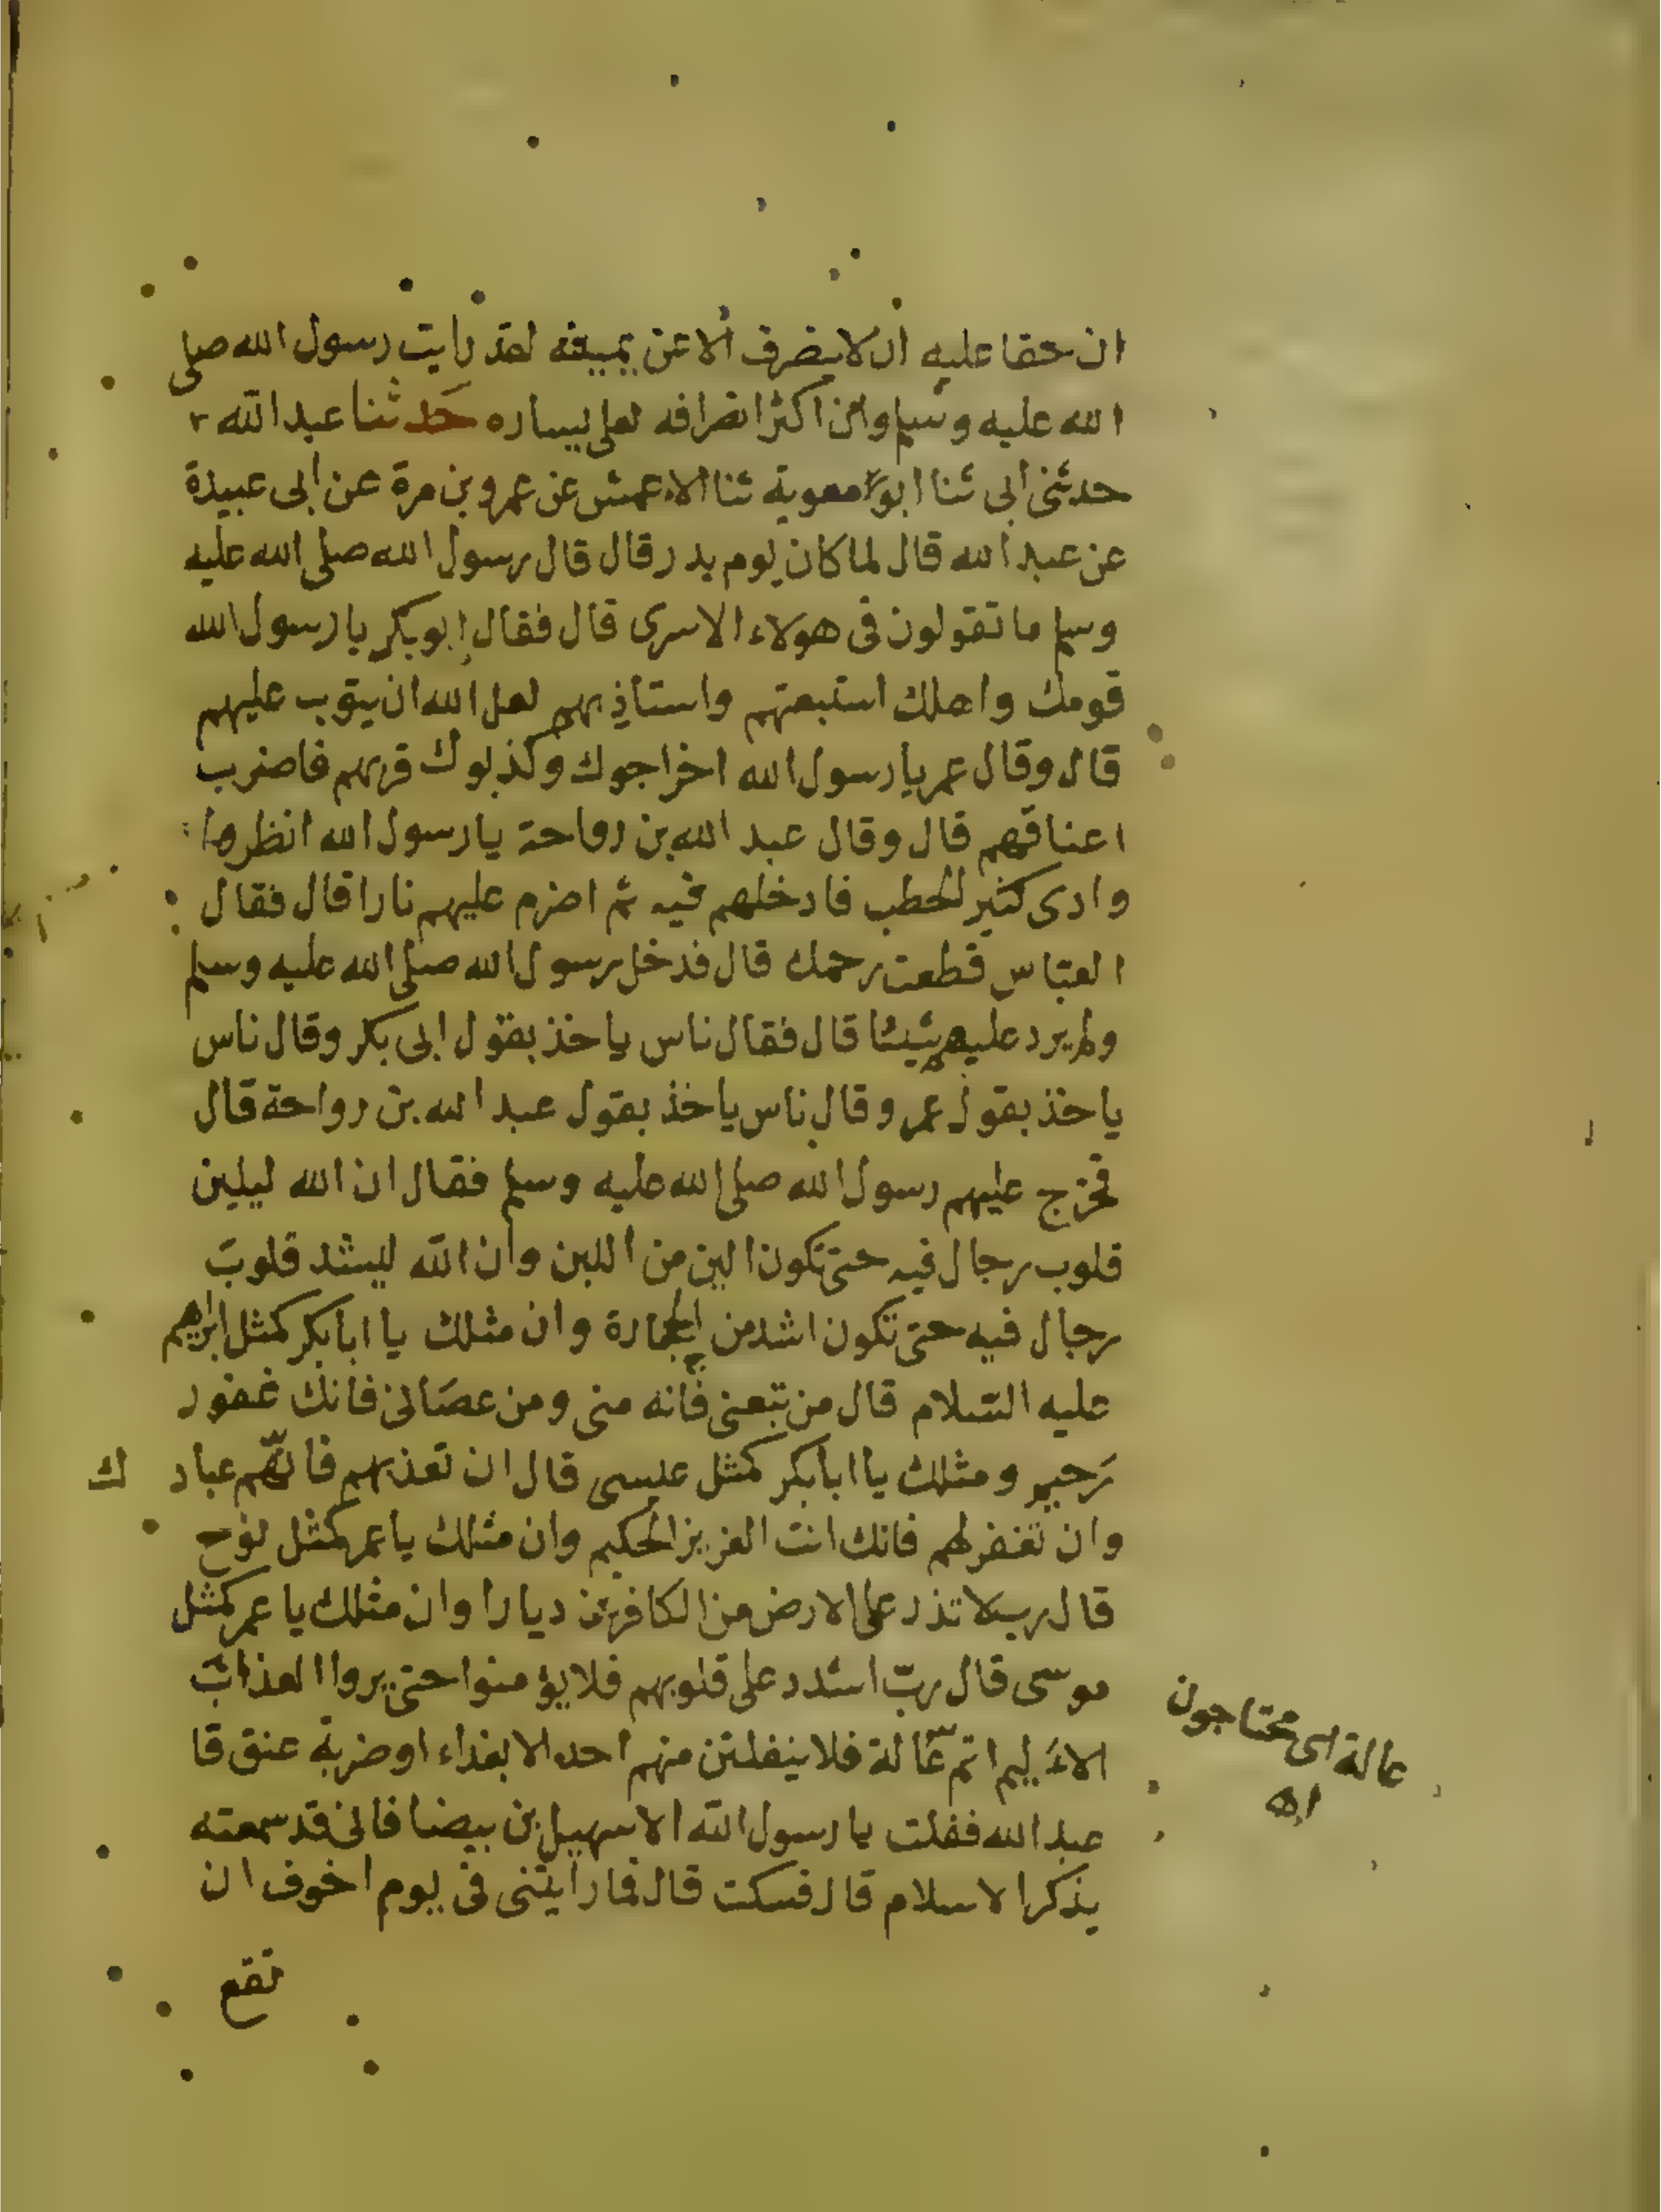 ان حقا عليه ان لا ينصرف الا عن يمينه لقد رايت رسول الله صلى
الله عليه وسلم وان اكثر انصرافه لعلى يساره حَدثنا عبد الله
حدثنى ابى ثنا ابو معوية ثنا الاعمش عن عمرو بن مرة عن ابى عبيدة
عن عبد الله قال لما كان يوم بدر قال قال رسول الله صلى الله عليه
وسلم ما تقولون فى هولاء الاسرى قال فقال ابو بكر يا رسول الله
قومك واهلك استبعتهم واستاذ بهم لعل الله ان يتوب عليهم
قال وقال عمر يا رسول الله اخراجوك وكذبوك قربهم فاضرب
اعناقهم قال وقال عبد الله بن رواحة يا رسول الله انظر
وادى كثير الحطب فادخلهم فيه ثم اضرم عليهم نارا قال فقال
العبّاس قطعت رحمك قال فدخل رسول الله صلى الله عليه وسلم
ولم يرد عليهم شيئا قال فقال ناس ياخذ بقول ابى بكر وقال ناس
ياخذ بقول عمر وقال ناس ياخذ بقول عبد الله بن رواحة قال
فخرج عليهم رسول الله صلى الله عليه وسلم فقال ان الله ليلين
قلوب رجال فيه حتى تكون الين من اللبن وان الله ليشد قلوبَ
رجال فيه حتى تكون اشد من الحجارة وان مثلك يا ابا بكر كمثل ابراهيم
عليه السّلام قال من تبعنى فانه منى ومن عصَانى فانك غفور
رَحيم ومثلك يا ابا بكر كمثل عيسى قال ان تعذبهم فانّهم عباد ك
وان تغفر لهم فانك انت العزيز الحكيم وان مثلك يا عمر كمثل نوح
قال رب لا تذر على الارض من الكافرين ديارا وان مثلك يا عمر كمثل
موسى قال ربّ اشدد على قلوبهم فلا يؤمنوا حتى يروا العذابَ
الاَليم انتم عَالة فلا ينفلتن منهم احد الا بفداء او ضربة عنق قا
عبد الله فقلت يا رسول الله الا سهيل بن بيضا فانى قد سمعته
يذكر الاسلام قال فسكت قال فما رايتنى فى يوم اخوف ان
تقع
عالة اى محتاجون
اه